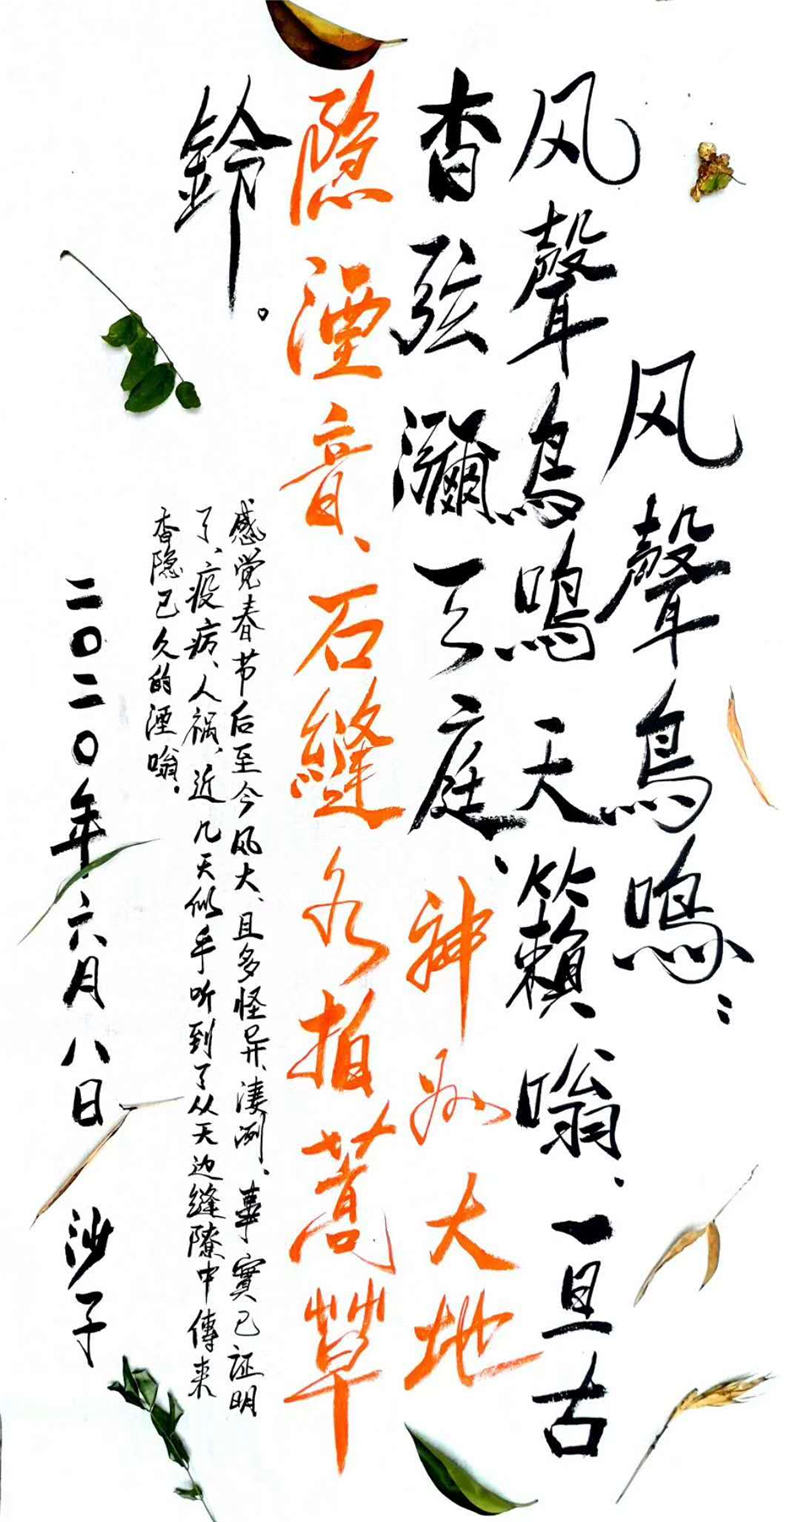 风聲鳥鳴：
风聲鳥鳴天籟嗡、一旦古
杳弦瀰天庭、神州大地
隐湮音、石縫拍蒿草
鈴。
感觉春节后至今风大、且多怪异、凄冽、事實已证明
了、疫病、人祸、近几天似乎听到了从天边缝中傳来
杳隐已久的湮嗡。
二〇二〇年六月八日 沙子